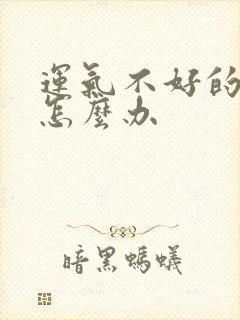 運氣不好的
怎麼办
暗黑螞蟻